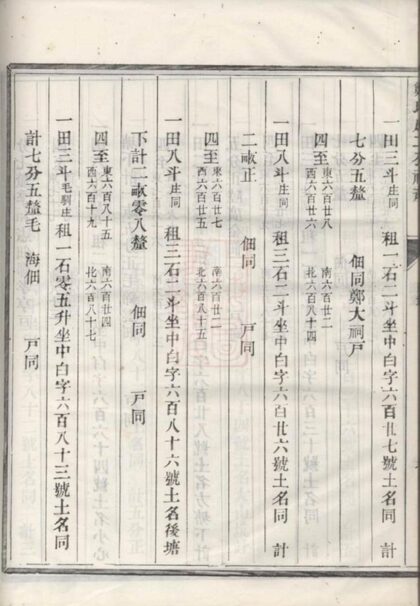 一田三斗庄同 租一石二斗坐中白字六百廿七號土名同 計
七分五釐 佃同鄭大祠戸
四至東六百廿八 西六百廿六 南同 北同
一田八斗庄同 租三石二斗坐中白字六百廿六號土名同 計
二畝正 佃同 戸同
四至東六百廿七 西六百廿五 南六百廿二 北六百八十五
一田八斗庄同 租三石二斗坐中白字六百八十六號土名後塘
下計二畝零八釐 佃同 戸同
四至東六百八十五 西六百十九 南六百廿四 北六百八十七
一田三斗毛駉庄 租一石零五升坐中白字六百八十三號土名同
計七分五釐毛 海佃 戸同